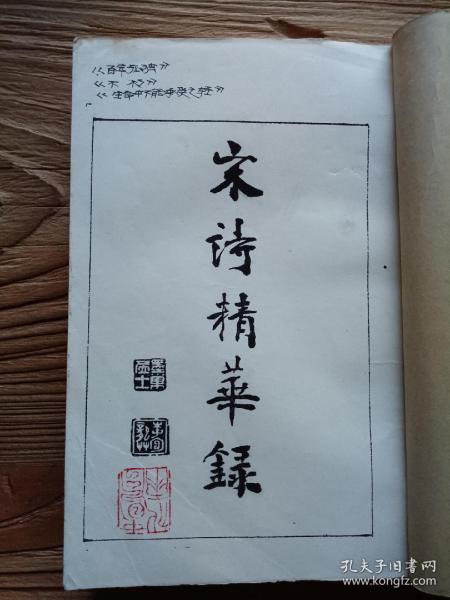 《百年孤独》
《不朽》
《生命中不能承受之轻》
宋诗精华录
孔夫子旧书网
www.kongfz.com